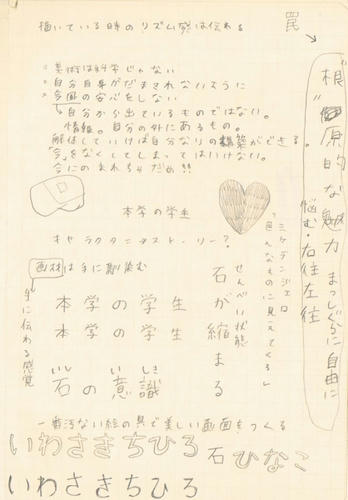 描いている時のリズム感は伝わる
罠
美術は科学じゃない
自分自身がだまされないように
安心をしない
自分から出ているものではない。
情報。自分の外にあるもの。
解体していけば自分なりの構築ができる。
「今」をなくしてしまってはいけない。
今にのまれちゃだめ!!
"根源的な魅力
まっしぐらに自由に
悩む・右往左往
本学の学生
キャラクタ ストーリー?
ミケランジェロ
「色んなものに見えてくる」
せんべい状態
石が縮まる
画材は手に馴染む
手に伝わる感覚
本学の学生
本学の学生
いしき
石の意識
一番汚ない絵の具で美しい画面をつくる
いわさきちひろ
石ひなこ
いわさきちひろ